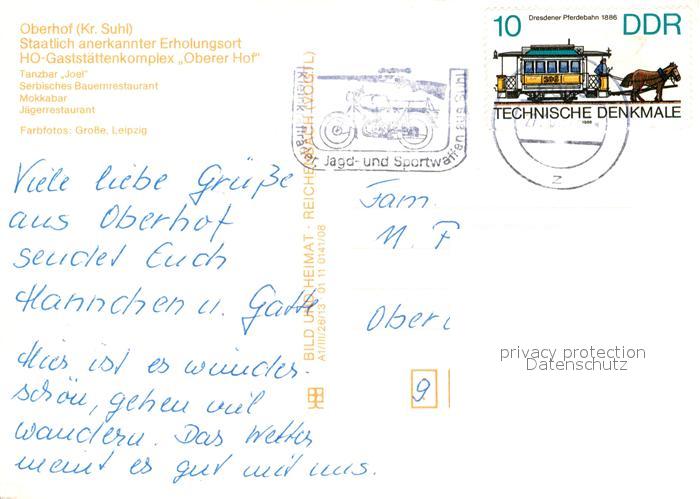 Oberhof (Kr. Suhl)
Staatlich anerkannter Erholungsort
HO-Gaststättenkomplex „Oberer Hof"
Tanzbar „Joel"
Serbisches Bauernrestaurant
Mokkabar
Jägerrestaurant
Farbfotos: Große, Leipzig
Viele liebe Grüße
aus Oberhof
sendet Euch
Hannchen u. Gatte
Hier ist es wunder-
schön, gehen viel
wandern. Das Wetter
meint es gut mit uns.
BILD UND HEIMAT · REICHENBACH (VOGTL)
A1/III/26/13 01 11 0141/08
Jagd- und Sportwaffen aus Suhl
10
Dresdener Pferdebahn 1886
DDR
TECHNISCHE DENKMALE
1986
Z
Fam.
M. F
Ober
9
privacy protection
Datenschutz